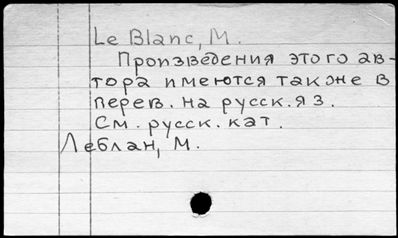 Le Blanc, M.
Произведения этого ав-
тора имеются также в
перев. на русск. яз.
См. русск. кат.
Леблан, М.